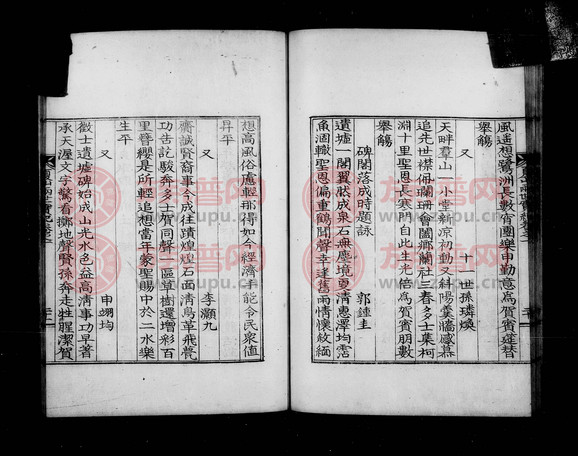 風遥想鷺洲長數有團樂申勤意爲賀賓筵替
舉觴
又 十一世孫璘煥
天畔羣山一小堂新凉初動又斜陽羹牆感慕
追先世襟佩斕珊會闔鄉蘭社三春多士集柯
淵十里聖恩長寒門自此生光倍爲賀賓朋數
舉觴
碑閣落成時題詠
郭鍾圭
遺墟一閣翼然成泉石無塵境更清惠澤均霑
魚涸轍聖恩偏重鶴聞聲幸逢舊雨情懷敘緬
想高風俗慮輕那得如今經濟手能令民衆値
昇平
又 李灝九
齋誠賢裔事今成往蹟煌煌石面清鳥革飛甍
功告記駿奔多士賀同聲一區草樹還增彩百
里簪纓是所輕追想當年蒙聖賜中於二水樂
生平
又 申翊均
徵士遺墟碑始成山光水色益高清事功早著
承天渥文字驚看擲地聲賢孫奔走牲腥潔賀